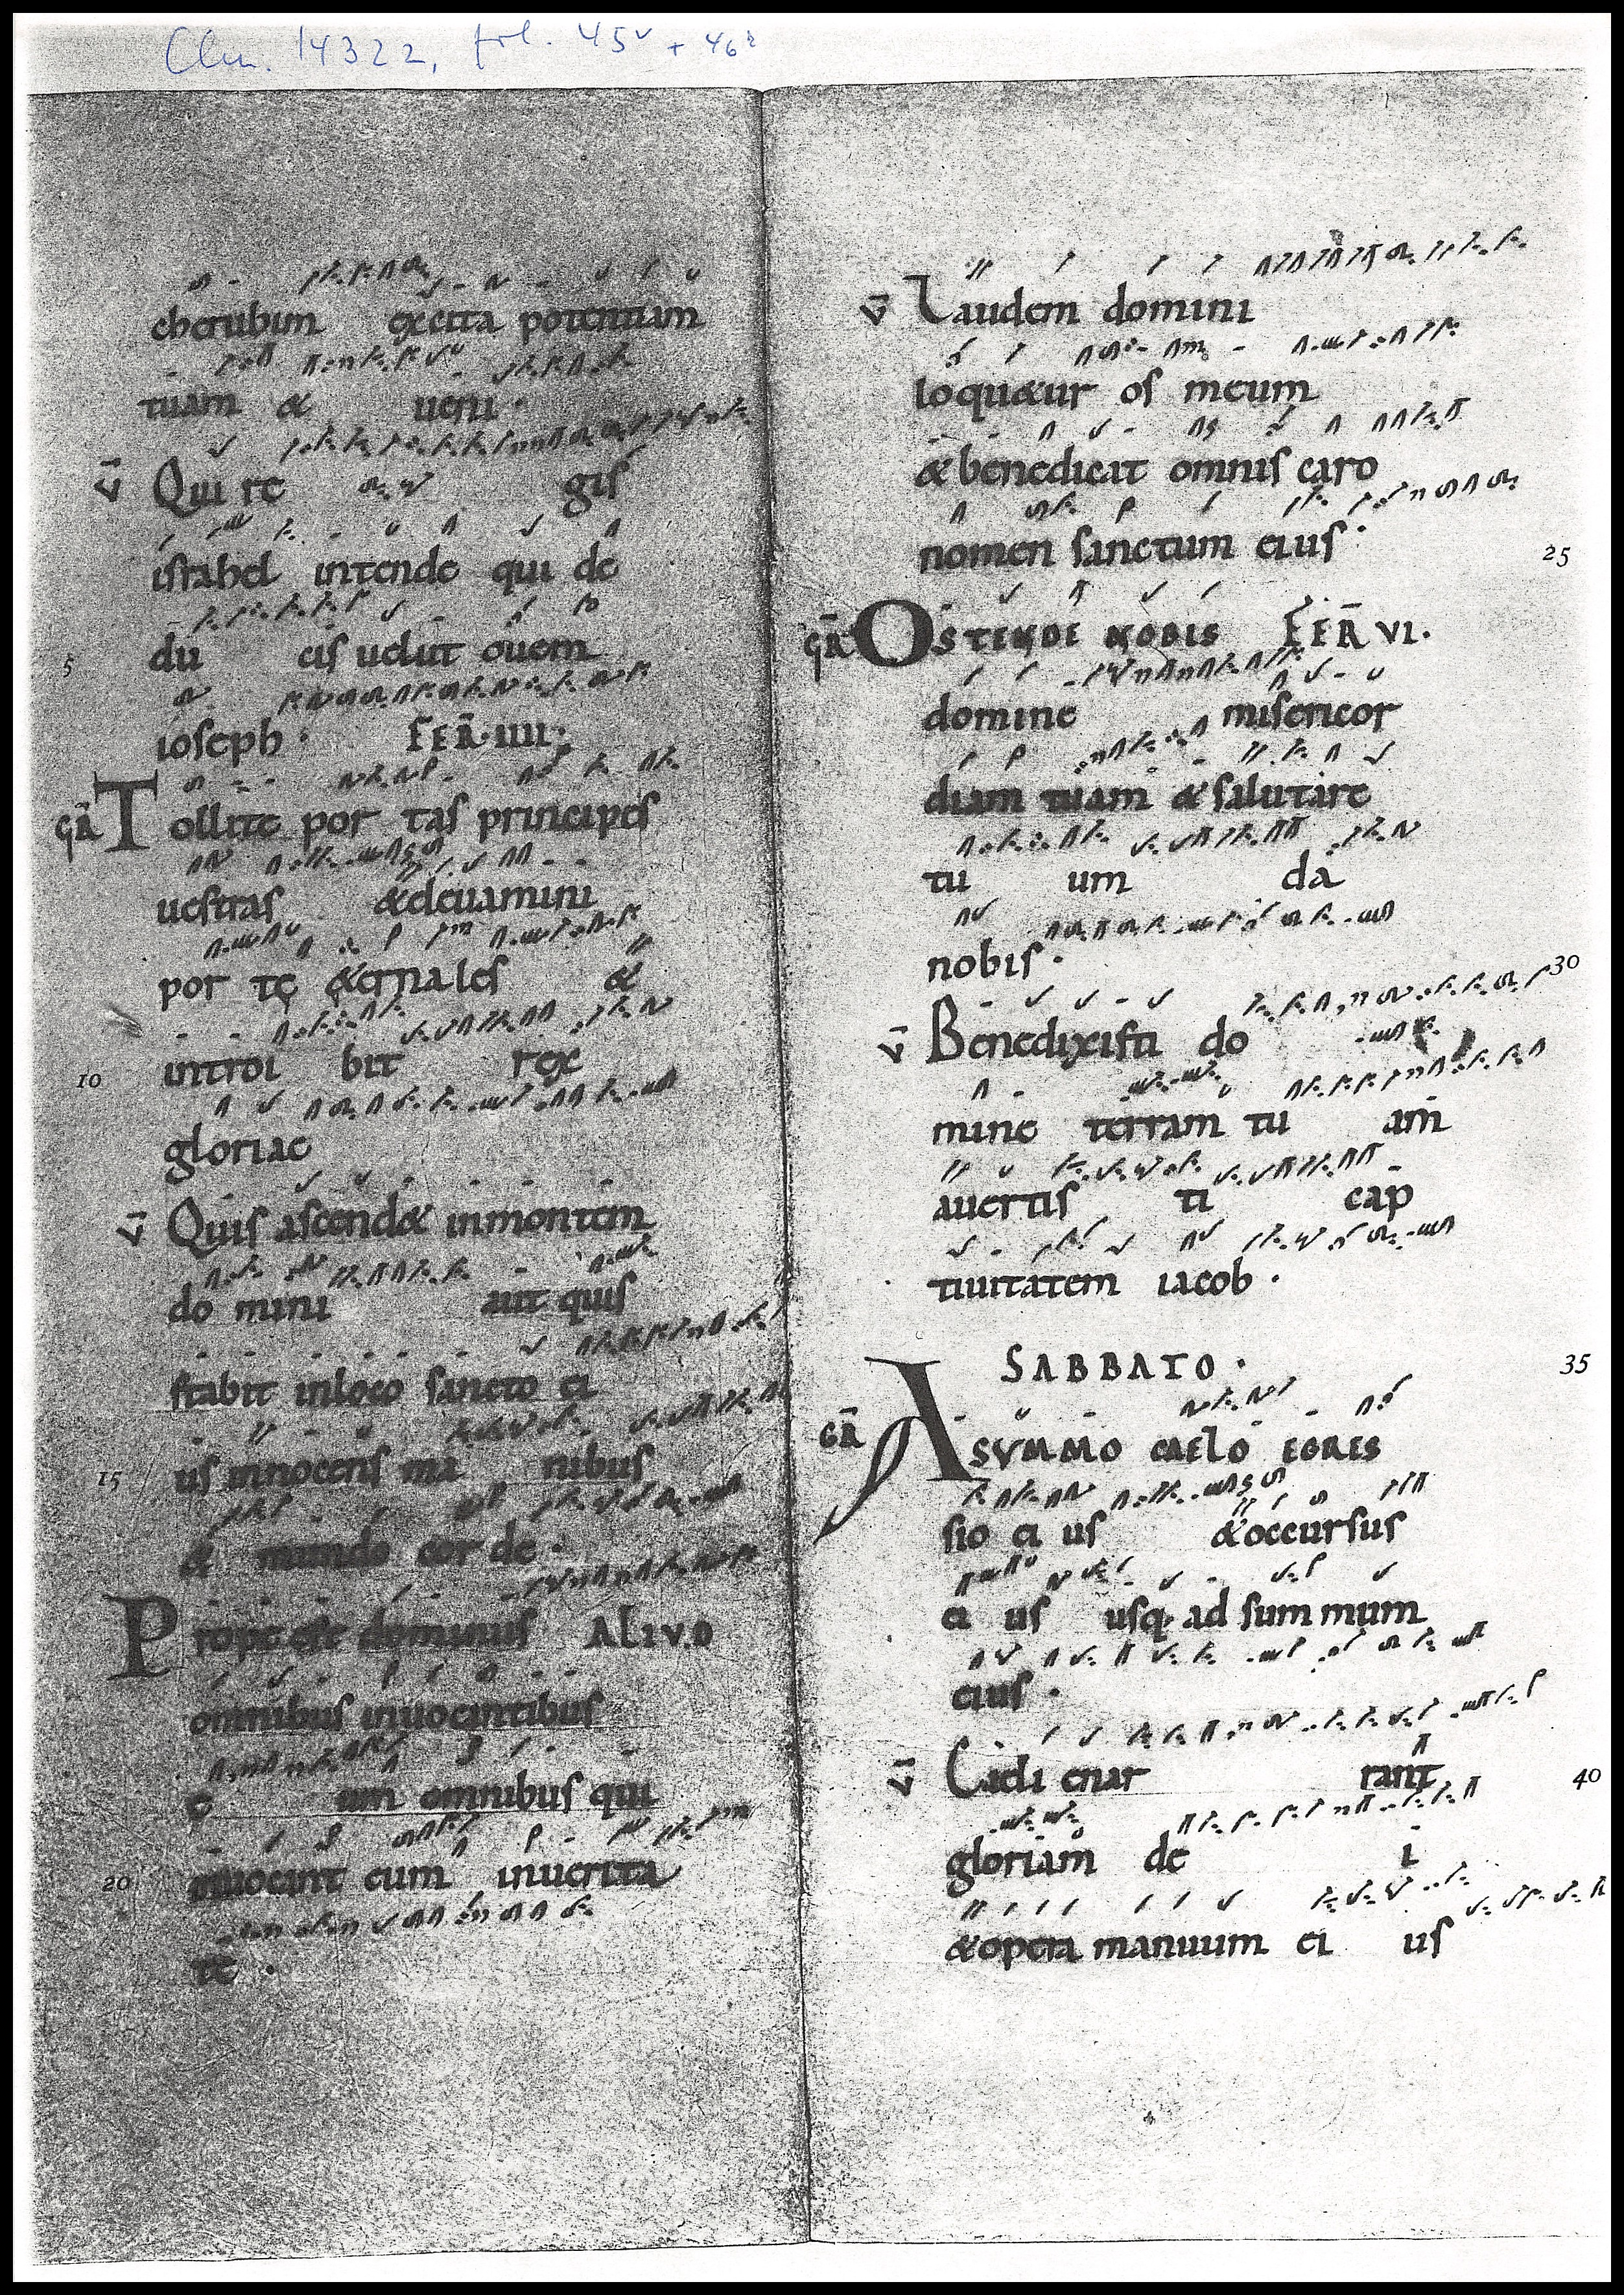 Clm. 14322, fol. 45v + 46r
cherubim excita potentiam
tuam & ueni ·
v̄ Qui re gis
israhel intende qui de
5 du cis uelut ouem
ioseph · FER̄ · IIII ·
GR̄ Tollite por tas principes
uestras &eleuamini
por tę ę&ernales &
10 introi bit rex
gloriae
v̄ Quis ascend& inmontem
do mini aut quis
stabit inloco sancto ei
15 us innocens ma nibus
& mundo cor de ·
Prope est dominus ALIVD
omnibus inuocantibus
e um omnibus qui
20 inuocant eum inuerita
te ·
v̄ Laudem domini
loqu&ur os meum
& benedicat omnis caro
nomen sanctum eius · 25
GR̄ OSTENDE NOBIS FER̄ VI.
domine misericor
diam tuam & salutare
tu um da
nobis · 30
v̄ Benedixisti do
mine terram tu am
auertis ti cap
tiuitatem iacob ·
SABBATO · 35
GR̄ A SVMMO CAELO EGRES
sio ei us &occursus
ei us usq· ad sum mum
eius ·
v̄ Caeli enar rant 40
gloriam de i
&opera manuum ei us